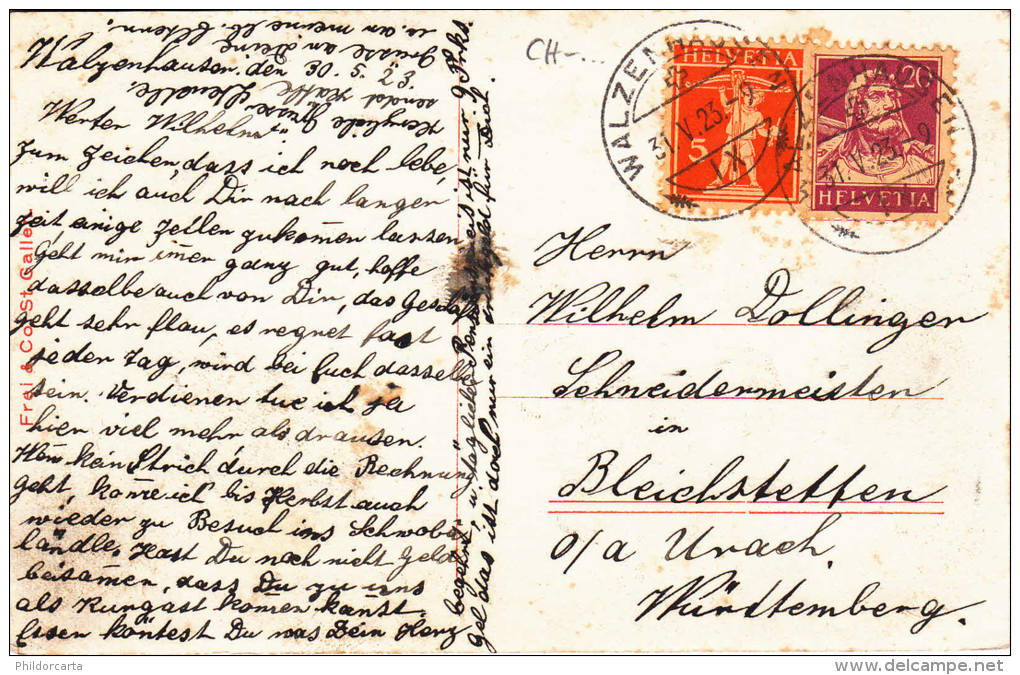 Walzenhausen, den 30. 5. 23.
Werter Wilhelm!
Zum Zeichen, dass ich noch lebe,
will ich auch Dir nach langer
Zeit einige Zeilen zukomen lassen
Geht mir imer ganz gut, hoffe
dasselbe auch von Dir, das Geschäft
geht sehr flau, es regnet fast
jeder Tag, wird bei Euch dasselbe
sein. Verdienen tue ich ja
hier viel mehr als draussen.
Wen kein Strich durch die Rechnung
geht, kome ich bis Herbst auch
wieder zu Besuch ins Schwoba-
ländle. Hast Du noch nicht Geld
beisamen, dass Du zu uns
als Kurgast komen kanst.
Essen köntest Du was Dein Herz
begehrt u. tägliche Pension es ist nur 9 Frks.
gel das ist doch nur ein für Dich.
Herzliche Grüsse
sendet
Grüsse an Deine
u. an meine lb. Eltern!
Frei & Co. St. Gallen
CH-...
WALZENHAUSEN
31.V.23.-9
IX
HELVETIA
5
WALZENHAUSEN
31.V.23.-9
20
HELVETIA
Herrn
Wilhelm Dollinger
Schneidermeister
in
Bleichstetten
o/a Urach
Württemberg.
Phildorcarta
delcampe.net